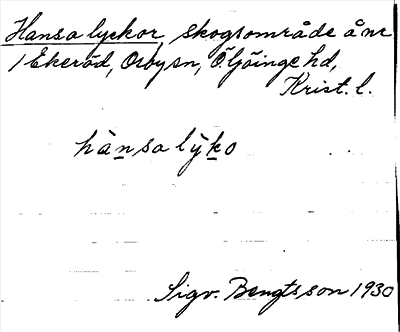 Hansalyckor, skogsområde å nr
1 Ekeröd, Osby sn, Ö. Göinge hd,
Krist. l.
hànsalỳko
Sigv. Bengtsson 1930